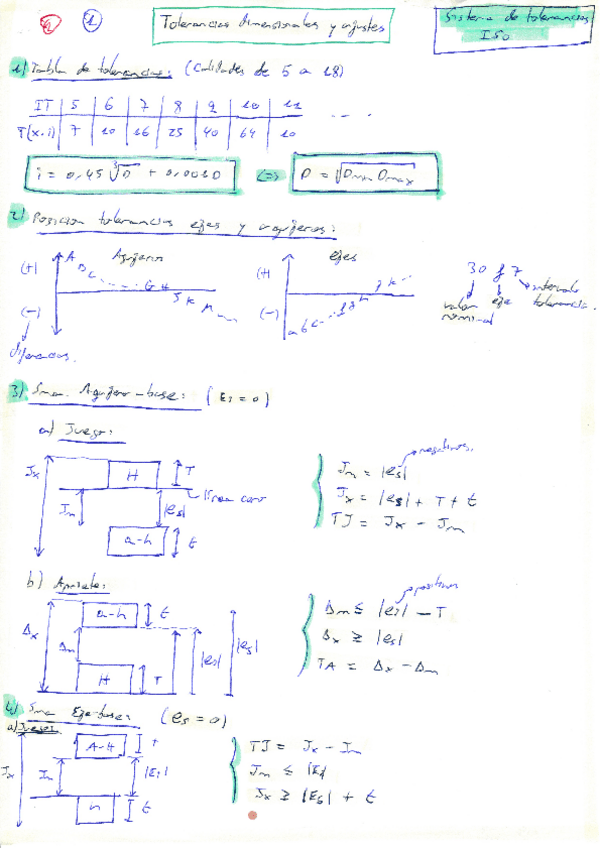 2 1 Tolerancias dimensionales y ajustes
Sistema de tolerancias
ISO
1) Tabla de tolerancias: (Calidades de 5 a 18)
IT | 5 | 6 | 7 | 8 | 9 | 10 | 11
T(x·i) | 7 | 10 | 16 | 25 | 40 | 64 | 10 .....
i = 0,45 ∛D + 0,001D <=> D = √Dmin Dmax
2) Posicion tolerancias ejes y agujeros:
Agujeros ejes
(+) A B C ... G H J K M ...
(-)
diferencias.
(+)
(-) a b c ... f g h j k ...
30 f 7
valor nominal
eje
intervalo tolerancia.
3) Sma. Agujero-base: (Ei=0)
a) Juego:
Jx H T
Jm |es| línea cero
a-h t
negativos.
Jm = |es|
Jx = |es| + T + t
TJ = Jx - Jm
b) Apriete:
a-h t
Δx Δm |ei| |es|
H T
positivos
Δm ≤ |ei| - T
Δx ≥ |es|
TA = Δx - Δm
4) Sma Eje-base: (es = 0)
a) Juego:
A-H T
Jx Jm |Ei|
h t
TJ = Jx - Jm
Jm ≤ |Ei|
Jx ≥ |Es| + t